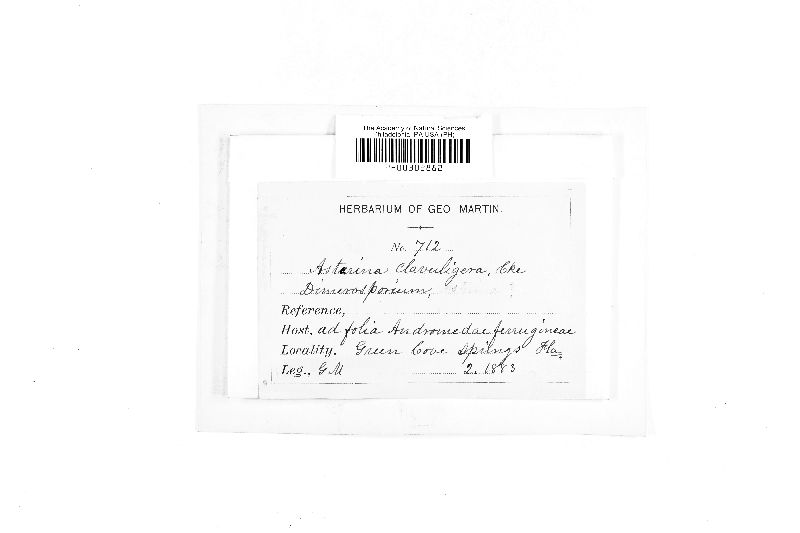 The Academy of Natural Sciences
Philadelphia, PA USA (PH)
HERBARIUM OF GEO MARTIN.
No. 712
Astarina Clavuligera, Cke
Dimerosporium,
Reference,
Host, ad folia Andromedae ferrugineae
Locality, Green Cove Springs Fla;
Leg., GM 2. 1883